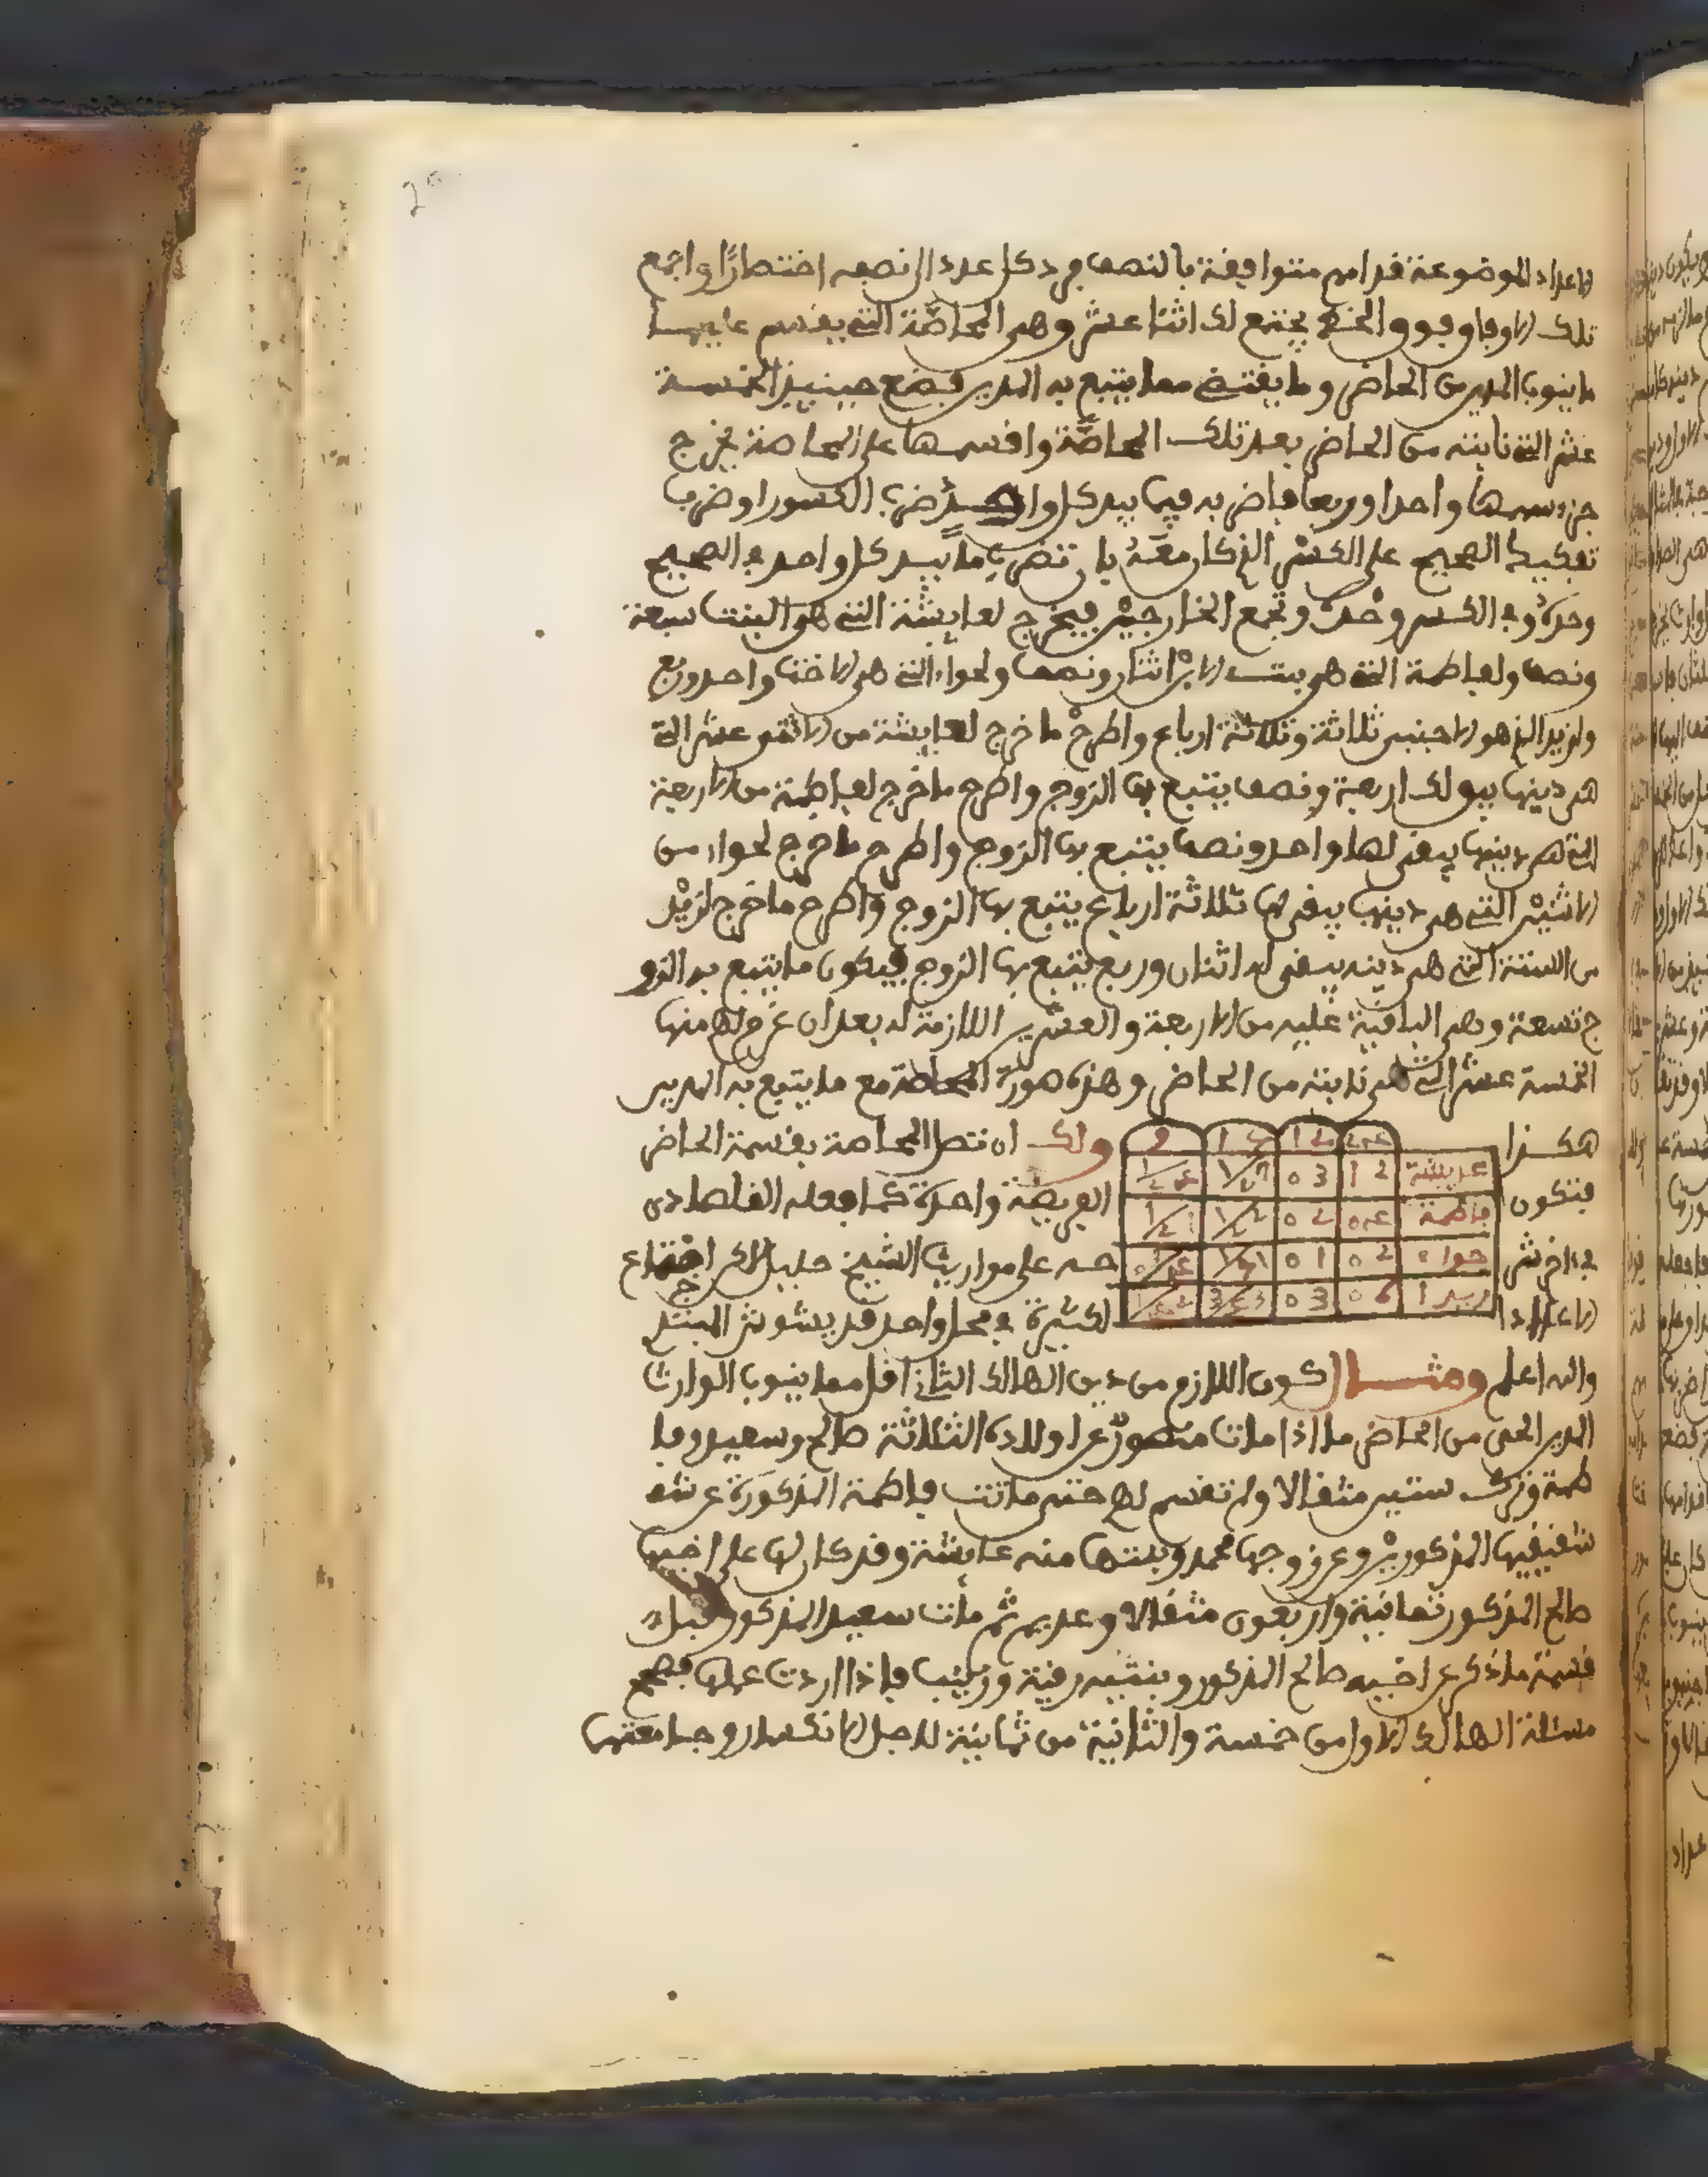 فاعداد الموضوعة قدامهم متوافقة بالنصف فرد كل عدد الى نصفه اختصارًا واجمع
تلك الاوفاق فوق الخط يجتمع لك اثنا عشر وهى المحاصّة التى يقسم عليها
ما ينوب المدير من الحاضر وما يقتضى مما يتبع به المدير فضع حينئذ الخمسة
عشر التى نابته من الحاضر بعد تلك المحاصّة واقسمها على المحاصة يخرج
جزء سهمها واحدا وربعا فاضربه فيما بيد كل واحد ضرب الكسور او ضرب
تفكيك الصحيح على الكسر الذى كان معه بان تضرب ما بيد كل واحد فى الصحيح
وحده وفى الكسر وحده وتجمع الخارجين فيخرج لعايشة التى هى البنت سبعة
ونصف ولفاطمة التى هى بنت الابن اثنان ونصف ولحواء التى هى الاخت واحد وربع
ولزيد الذى هو الاجنبى ثلاثة وثلاثة ارباع واطرح ما خرج لعايشة من الاثنى عشر التى
هى دينها يبق لك اربعة ونصف يتبع بها الزوج واطرح ما خرج لفاطمة من الاربعة
التى هى دينها يبقى لها واحد ونصف يتبع بها الزوج واطرح ما خرج لحواء من
الاثنين التى هى دينها يبقى لها ثلاثة ارباع يتبع بها الزوج واطرح ما خرج لزيْد
من الستة التى هى دينه يبقى له اثنان وربع يتبع بها الزوج فيكون ما يتبع به الزو
ج تسعة وهى الباقية عليه من الاربعة والعشرين اللازمة له بعد ان غرم لهم منها
الخمسة عشر التى هى نابته من الحاضر وهذه صورة المحاصة مع ما يتبع به المدير
هكذا ولك ان تصل المحاصة بقسمة الحاضر
فتكون الفريضة واحدة كما فعله القلصادى
فى اخر شرحه على مواريث الشيخ خليل لكن اجتماع
الاعداد الكثيرة فى محل واحد قد يشوش المبتدى
عايشة 12 03
فاطمة 04 02
حواء 02 01
زيد ا 06 03
والله اعلم ومثال كون اللازم من دين الهالك الثانى اقل مما ينوب الوارث
المدير الحى من الحاضر ما اذا مات منصورٌ عن اولاده الثلاثة صالح وسعيد وفا
طمة وترك ستين مثقالا ولم تقسم لهم حتى ماتت فاطمة المذكورة عن شـ
شقيقيها المذكوريْن وعن زوجها محمد وبنتها منه عايشة وقد كان لها على اخيها
صالح المذكور ثمانية واربعون مثقالا وعديم ثم مات سعيد المذكور قبل
قسمة ما ذكر عن اخيه صالح المذكور وبنتيه رقية وزينب فاذا اردت عملها فصحح
مسئلة الهالك الاول من خمسة والثانية من ثمانية لاجل الانكسار وجامعتها